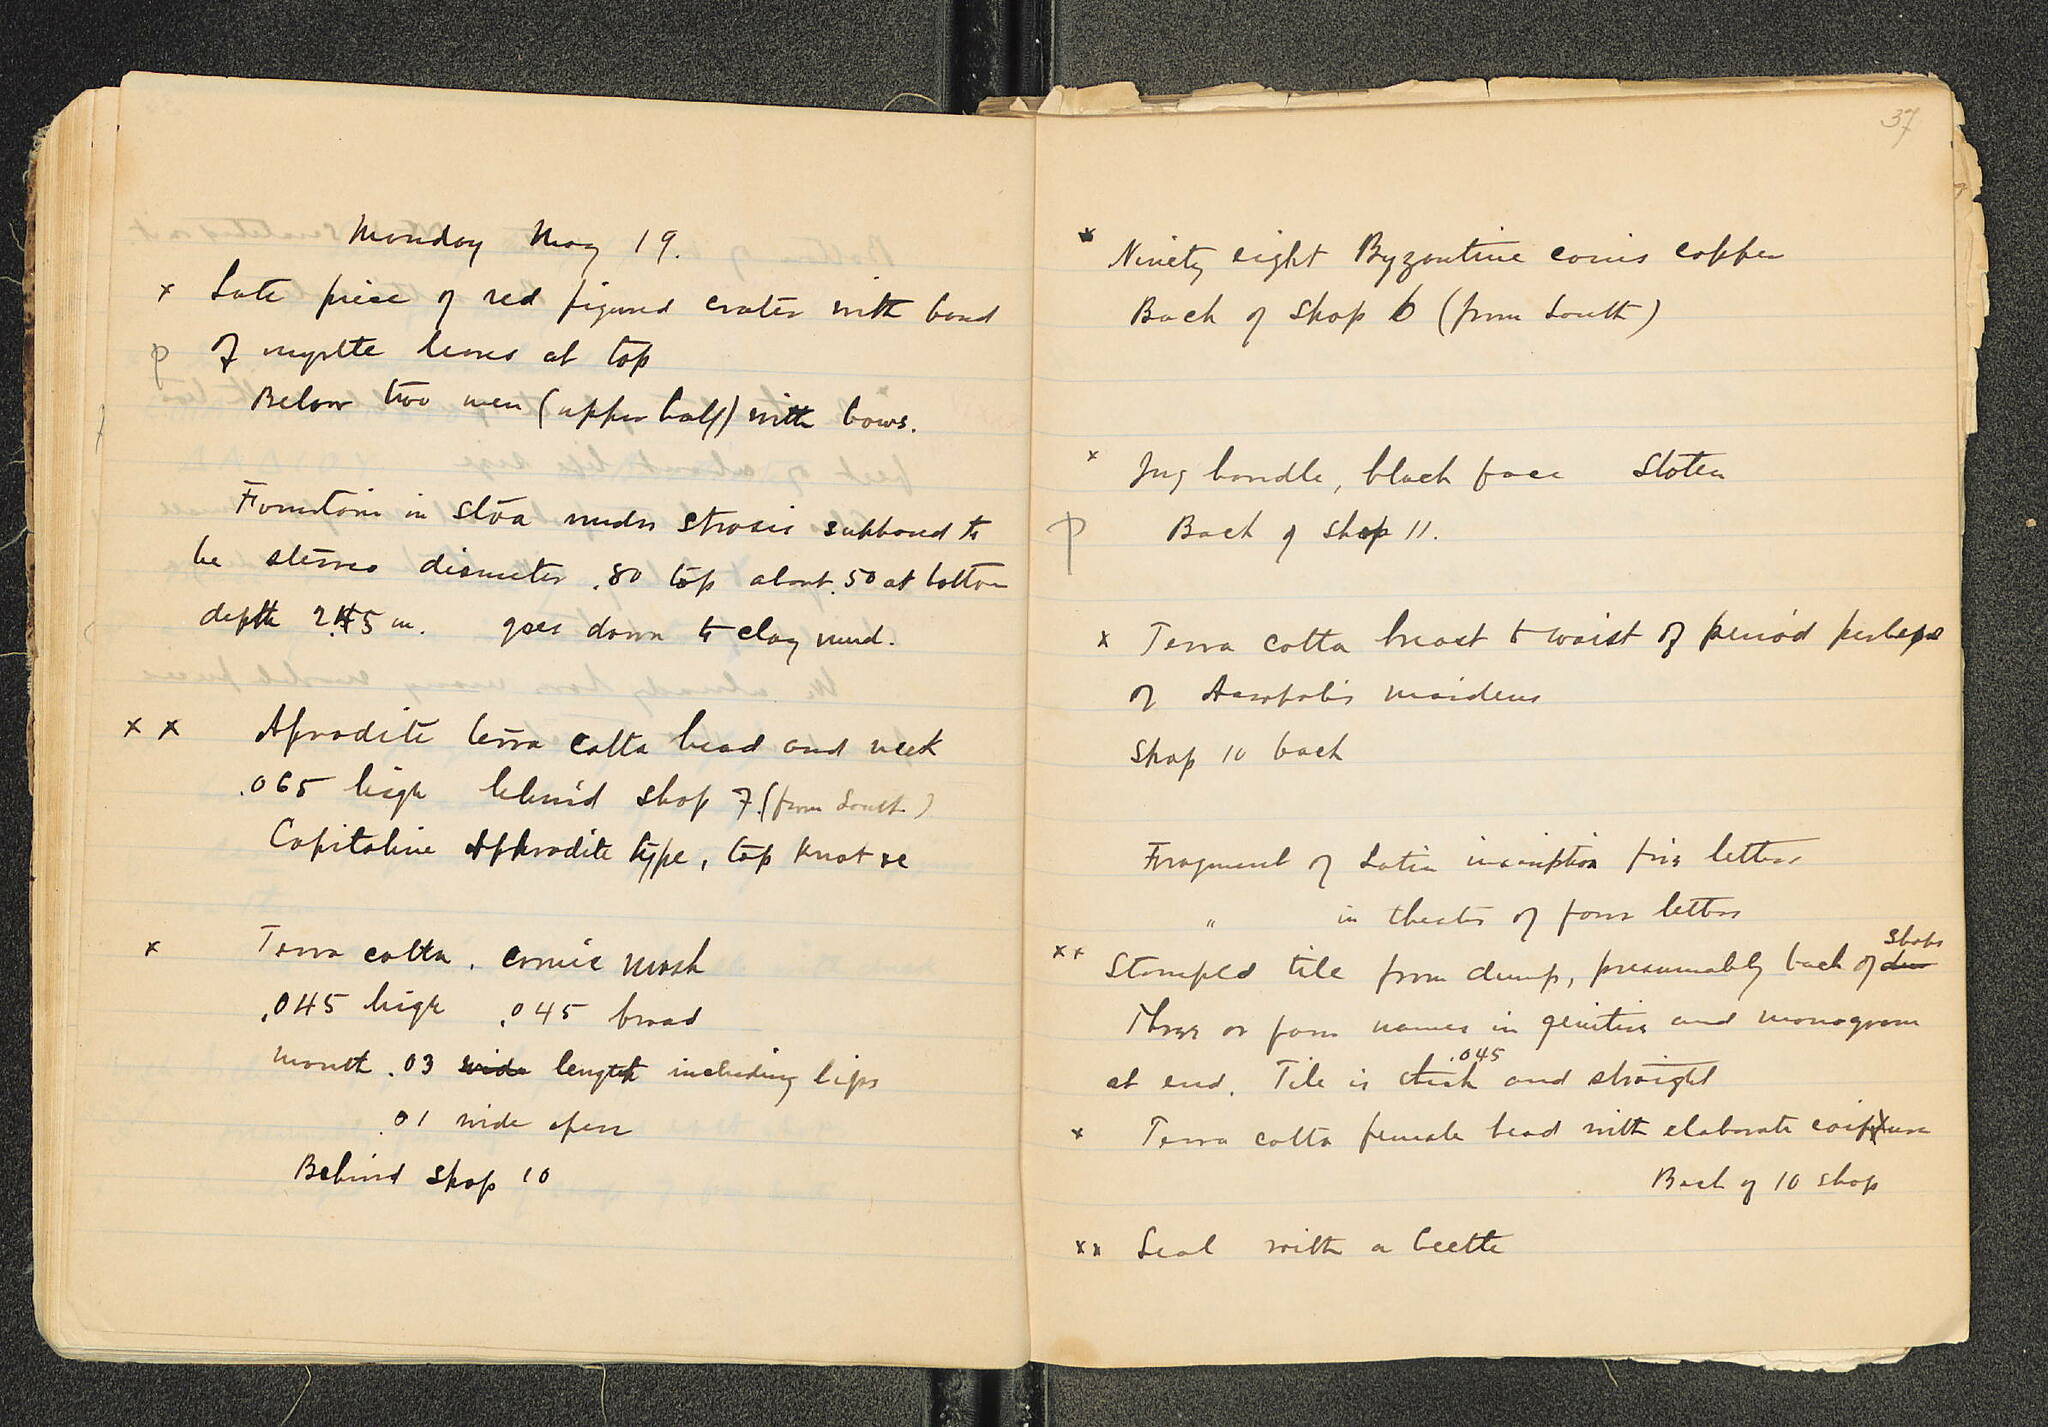 Monday May 19.
x Late piece of red figured crater with band
p of myrtle leaves at top
Below two men (upper half) with bows.
in stoa under strosis supposed to
be diameter .80 top about .50 at bottom
depth 2.45 m. goes down to clay mud.
x x Aphrodite terra cotta head and neck
.065 high behind shop 7 (from South)
Capitoline Aphrodite type, top knot
x Terra cotta. comic mask
.045 high .045 broad
mouth .03 wide length including lips
.01 wide open
Behind shop 10
37
x Ninety eight Byzantine coins copper
Back of shop 6 (from South)
x Jug handle, black face
p Back of shop 11.
x Terra cotta breast to waist of period perhaps
of Acropolis maidens
Shop 10 back
Fragment of Latin inscription five letters
" in theater of four letters
shops
xx Stamped tile from dump, presumably back of
Three or four names in genitive and monogram
.045
at end. Tile is thick and straight
x Terra cotta female head with elaborate coiffure
Back of 10 shop
xx Seal with a beetle